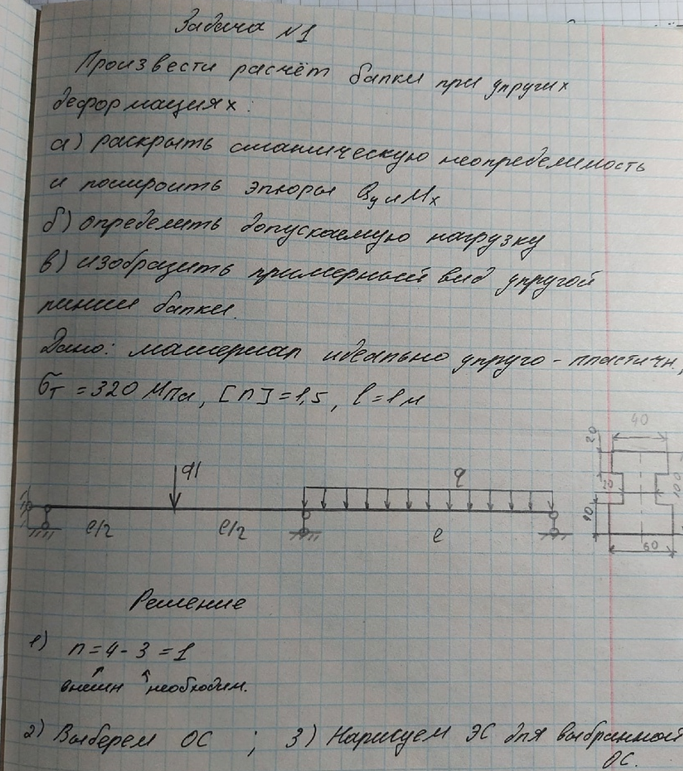 Задача №1
Произвести расчёт балки при упругих
деформациях:
а) раскрыть статическую неопределимость
и построить эпюры Qy и Mx
б) определить допускаемую нагрузку
в) изобразить примерный вид упругой
линии балки.
Дано: материал идеально упруго-пластичн.,
σт = 320 МПа, [n] = 1,5, l = 1 м
ql
q
l/2
l/2
l
40
20
20
100
60
Решение
1) n = 4 - 3 = 1
внешн необходим.
2) Выберем ОС ; 3) Нарисуем ЭС для выбранной
ОС.